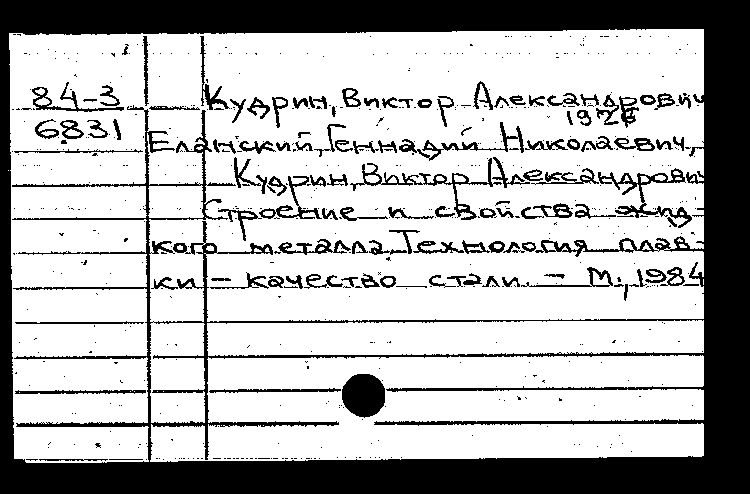 84-3 Кудрин, Виктор Александрович
1926
6831 Еланский, Геннадий Николаевич,
Кудрин, Виктор Александрович
Строение и свойства жид-
кого металла. Технология плав-
ки - качество стали. - М., 1984